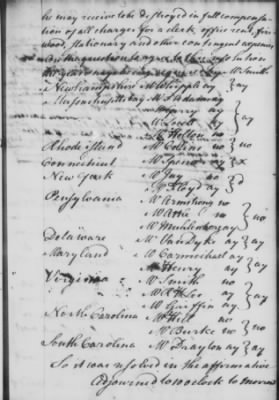 he may receive to be destroyed in full compensa
tion of all charges for a clerk, office rent, fire
wood, stationary and other contingent expences
Mr Smith
New hampshire Mr Whipple ay } ay
Massachusetts bay Mr S Adams ay
Mr Gerry ay } ay
Mr Lovell ay
Mr Holten no
Rhode island Mr Collins no } no
Connecticut Mr Spencer ay } x
New York Mr Jay no
Mr Floyd ay } d
Pensylvania Mr Armstrong no
Mr Atlee no } no
Mr Muhlenberg ay
Delaware Mr Van Dyke ay } ay
Maryland Mr Carmichael ay
Mr Henry ay } ay
Virginia Mr Smith no
Mr Griffin ay
North Carolina Mr Hill no
Mr Burke no } no
South Carolina Mr Drayton ay } ay
So it was resolved in the affirmative
Adjourned to 10 o'clock to morrow